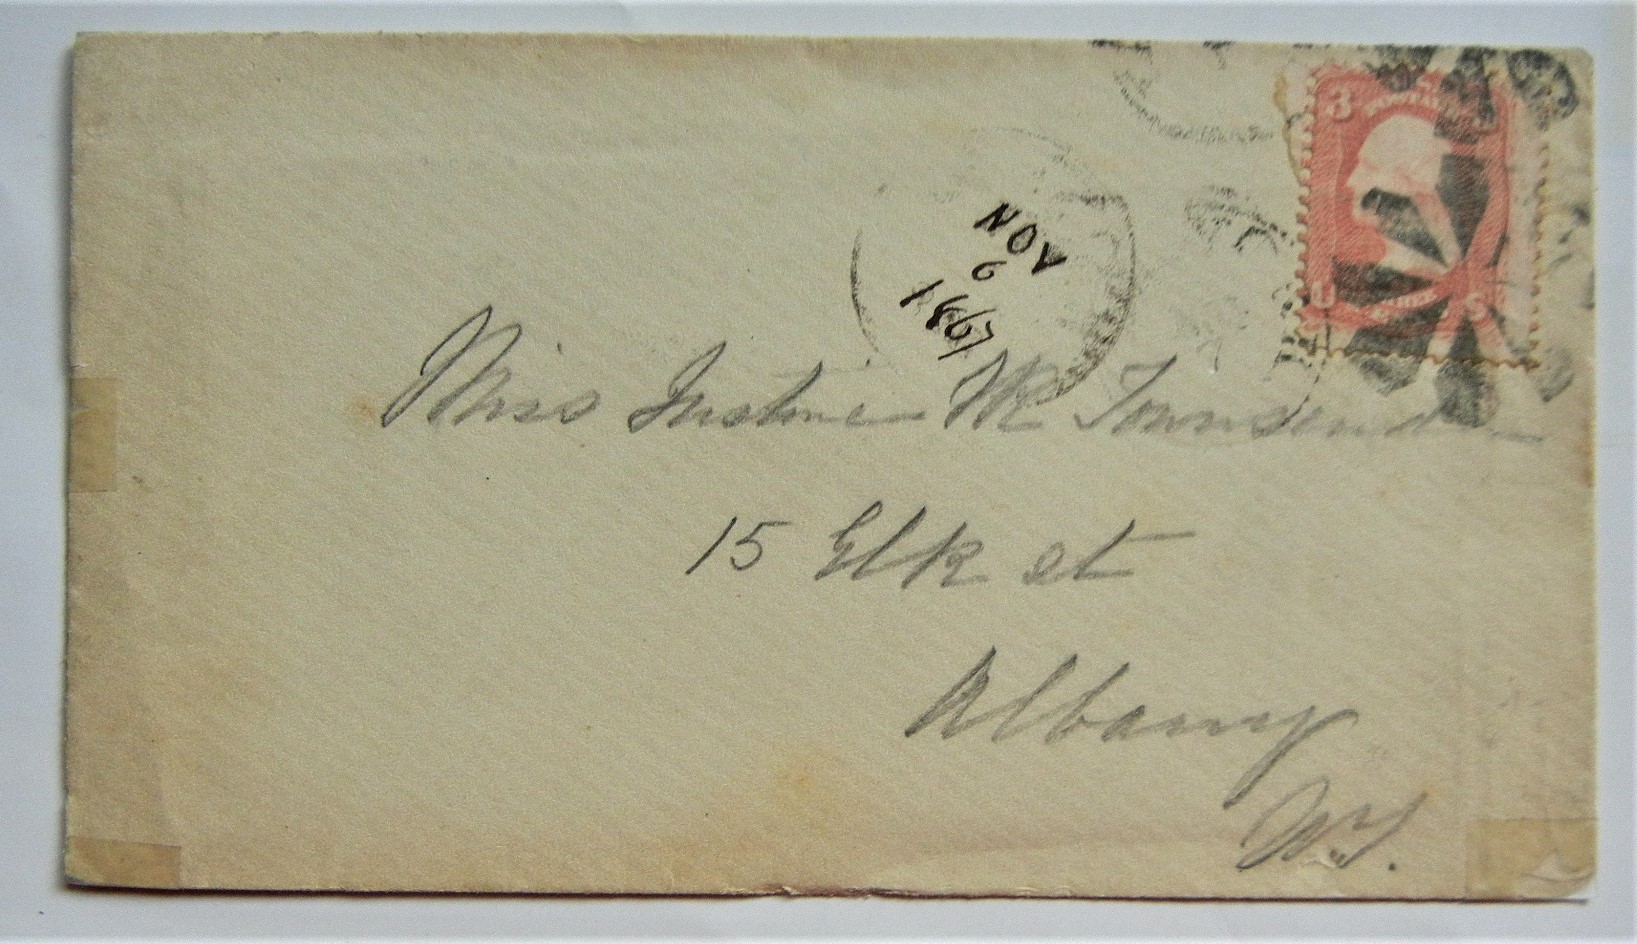 3
U S
NOV
6
1867
Miss Justine M Townsend
15 Elk st
Albany
N.Y.